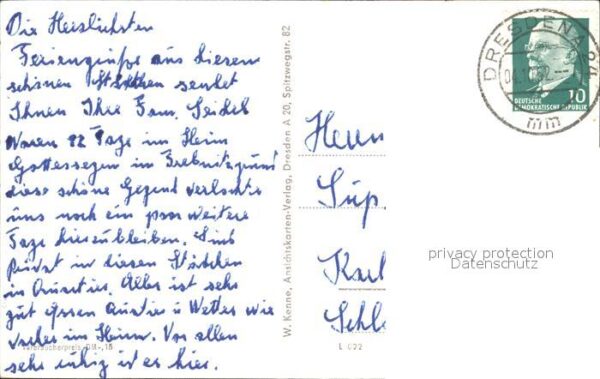 Die Herzlichsten
Feriengrüße aus diesem
schönen Städtchen sendet
Ihnen Ihre Fam. Seidel
Waren 12 Tage im Heim
Gottessegen im Trebnitzgrund
diese schöne Gegend verlockte
uns noch ein paar weitere
Tage hierzubleiben. Sind
privat in diesen Städtchen
in Quartier. Alles ist sehr
gut Essen Quartier u Wetter wie
vorher im Heim. Vor allen
sehr ruhig ist es hier.
Verbraucherpreis: DM -,15
W. Kenne, Ansichtskarten-Verlag, Dresden A 20, Spitzwegstr. 82
DRESDEN A 24
10
DEUTSCHE
DEMOKRATISCHE REPUBLIK
Herrn
Sup
Karl
Schl
privacy protection
Datenschutz